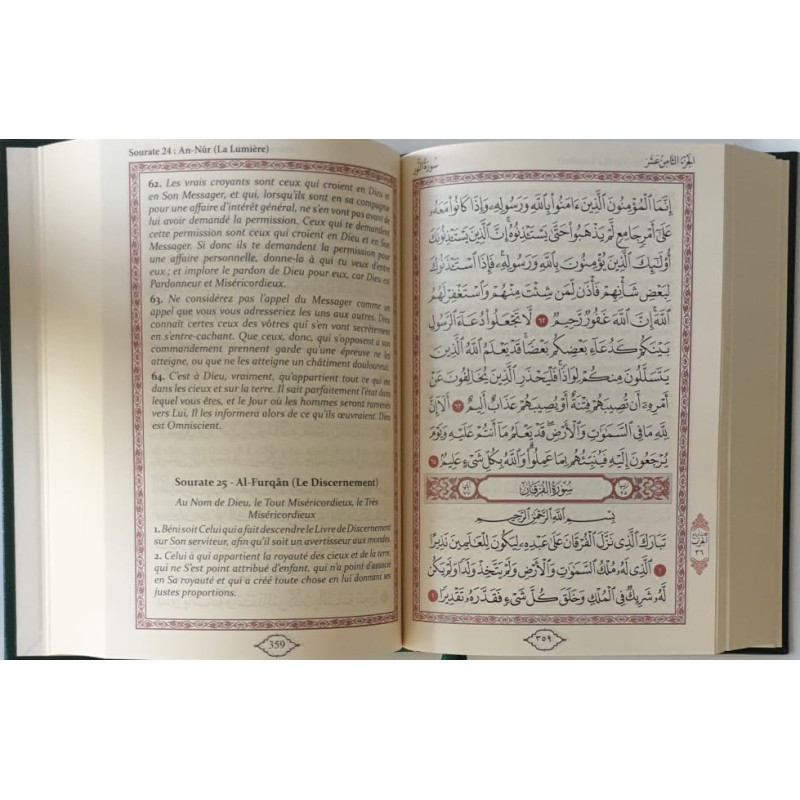 Sourate 24 : An-Nûr (La Lumière)
62. Les vrais croyants sont ceux qui croient en Dieu et
en Son Messager, et qui, lorsqu'ils sont en sa compagnie
pour une affaire d'intérêt général, ne s'en vont pas avant de
lui avoir demandé la permission. Ceux qui te demandent
cette permission sont ceux qui croient en Dieu et en Son
Messager. Si donc ils te demandent la permission pour
une affaire personnelle, donne-la à qui tu veux d'entre
eux ; et implore le pardon de Dieu pour eux, car Dieu est
Pardonneur et Miséricordieux.
63. Ne considérez pas l'appel du Messager comme un
appel que vous vous adresseriez les uns aux autres. Dieu
connaît certes ceux des vôtres qui s'en vont secrètement
en s'entre-cachant. Que ceux, donc, qui s'opposent à son
commandement prennent garde qu'une épreuve ne les
atteigne, ou que ne les atteigne un châtiment douloureux.
64. C'est à Dieu, vraiment, qu'appartient tout ce qui est
dans les cieux et sur la terre. Il sait parfaitement l'état dans
lequel vous êtes, et le Jour où les hommes seront ramenés
vers Lui, Il les informera alors de ce qu'ils œuvraient. Dieu
est Omniscient.
Sourate 25 - Al-Furqân (Le Discernement)
Au Nom de Dieu, le Tout Miséricordieux, le Très
Miséricordieux
1. Béni soit Celui qui a fait descendre le Livre de Discernement
sur Son serviteur, afin qu'il soit un avertisseur aux mondes.
2. Celui à qui appartient la royauté des cieux et de la terre,
qui ne S'est point attribué d'enfant, qui n'a point d'associé
en Sa royauté et qui a créé toute chose en lui donnant ses
justes proportions.
359
الجزء الثامن عشر
سورة النور
إِنَّمَا الْمُؤْمِنُونَ الَّذِينَ ءَامَنُوا بِاللَّهِ وَرَسُولِهِ وَإِذَا كَانُوا مَعَهُ
عَلَىٰ أَمْرٍ جَامِعٍ لَّمْ يَذْهَبُوا حَتَّىٰ يَسْتَـْٔذِنُوهُ إِنَّ الَّذِينَ يَسْتَـْٔذِنُونَكَ
أُولَٰئِكَ الَّذِينَ يُؤْمِنُونَ بِاللَّهِ وَرَسُولِهِ فَإِذَا اسْتَـْٔذَنُوكَ
لِبَعْضِ شَأْنِهِمْ فَأْذَن لِّمَن شِئْتَ مِنْهُمْ وَاسْتَغْفِرْ لَهُمُ
اللَّهَ إِنَّ اللَّهَ غَفُورٌ رَّحِيمٌ ٦٢ لَّا تَجْعَلُوا دُعَاءَ الرَّسُولِ
بَيْنَكُمْ كَدُعَاءِ بَعْضِكُم بَعْضًا قَدْ يَعْلَمُ اللَّهُ الَّذِينَ
يَتَسَلَّلُونَ مِنكُمْ لِوَاذًا فَلْيَحْذَرِ الَّذِينَ يُخَالِفُونَ عَنْ
أَمْرِهِ أَن تُصِيبَهُمْ فِتْنَةٌ أَوْ يُصِيبَهُمْ عَذَابٌ أَلِيمٌ ٦٣ أَلَا إِنَّ
لِلَّهِ مَا فِي السَّمَٰوَٰتِ وَالْأَرْضِ قَدْ يَعْلَمُ مَا أَنتُمْ عَلَيْهِ وَيَوْمَ
يُرْجَعُونَ إِلَيْهِ فَيُنَبِّئُهُم بِمَا عَمِلُوا وَاللَّهُ بِكُلِّ شَيْءٍ عَلِيمٌ ٦٤
سورة الفرقان
بِسْمِ اللَّهِ الرَّحْمَٰنِ الرَّحِيمِ
تَبَارَكَ الَّذِي نَزَّلَ الْفُرْقَانَ عَلَىٰ عَبْدِهِ لِيَكُونَ لِلْعَالَمِينَ نَذِيرًا
١ الَّذِي لَهُ مُلْكُ السَّمَٰوَٰتِ وَالْأَرْضِ وَلَمْ يَتَّخِذْ وَلَدًا وَلَمْ يَكُن
لَّهُ شَرِيكٌ فِي الْمُلْكِ وَخَلَقَ كُلَّ شَيْءٍ فَقَدَّرَهُ تَقْدِيرًا ٢
الحزب
٣٦
٣٥٩